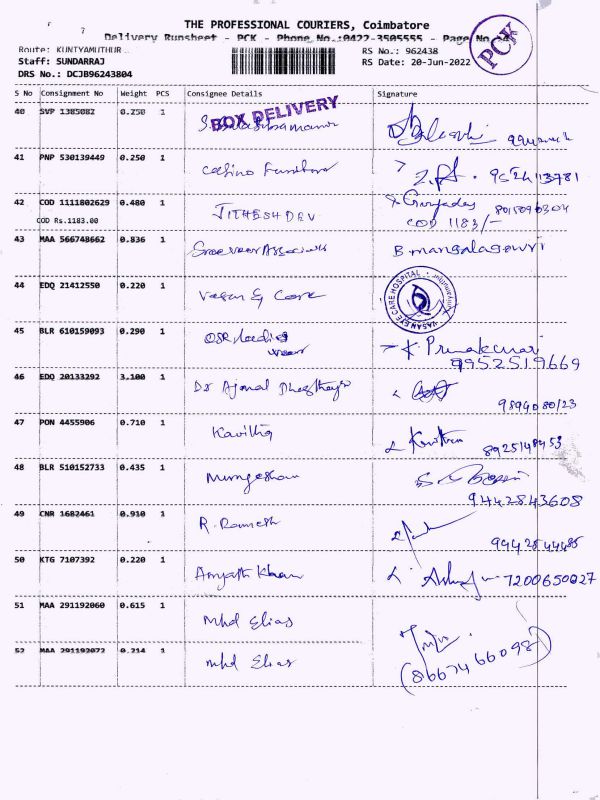 THE PROFESSIONAL COURIERS, Coimbatore
Delivery Runsheet - PCK - Phone No.:0422-3505555 - Page No.
PCK
Route: KUNIYAMUTHUR
RS No.: 962438
Staff: SUNDARRAJ
RS Date: 20-Jun-2022
DRS No.: DCJB96243804
S No Consignment No Weight PCS Consignee Details Signature
BOX DELIVERY
40 SVP 1385082 0.250 1
41 PNP 530139449 0.250 1 9524113781
42 COD 1111802629 0.480 1 JITHESH DEV
COD Rs.1183.00 COD 1183/-
43 MAA 566748662 0.836 1 Sree veer Associates B mangalagowri
44 EDQ 21412550 0.220 1 Vasan Eye Care
VASAN EYE CARE HOSPITAL
45 BLR 610159093 0.290 1
9952519669
46 EDQ 20133292 3.100 1 Dr Ajmal
9894080123
47 PON 4455906 0.710 1 Kavitha
48 BLR 510152733 0.435 1 Murugeshan
9442843608
49 CNR 1682461 0.910 1 R. Ramesh
9442544485
50 KTG 7107392 0.220 1 Khan 7200650027
51 MAA 291192060 0.615 1 Mhd Elias
52 MAA 291192072 0.214 1 Mhd Elias
(8667466098)